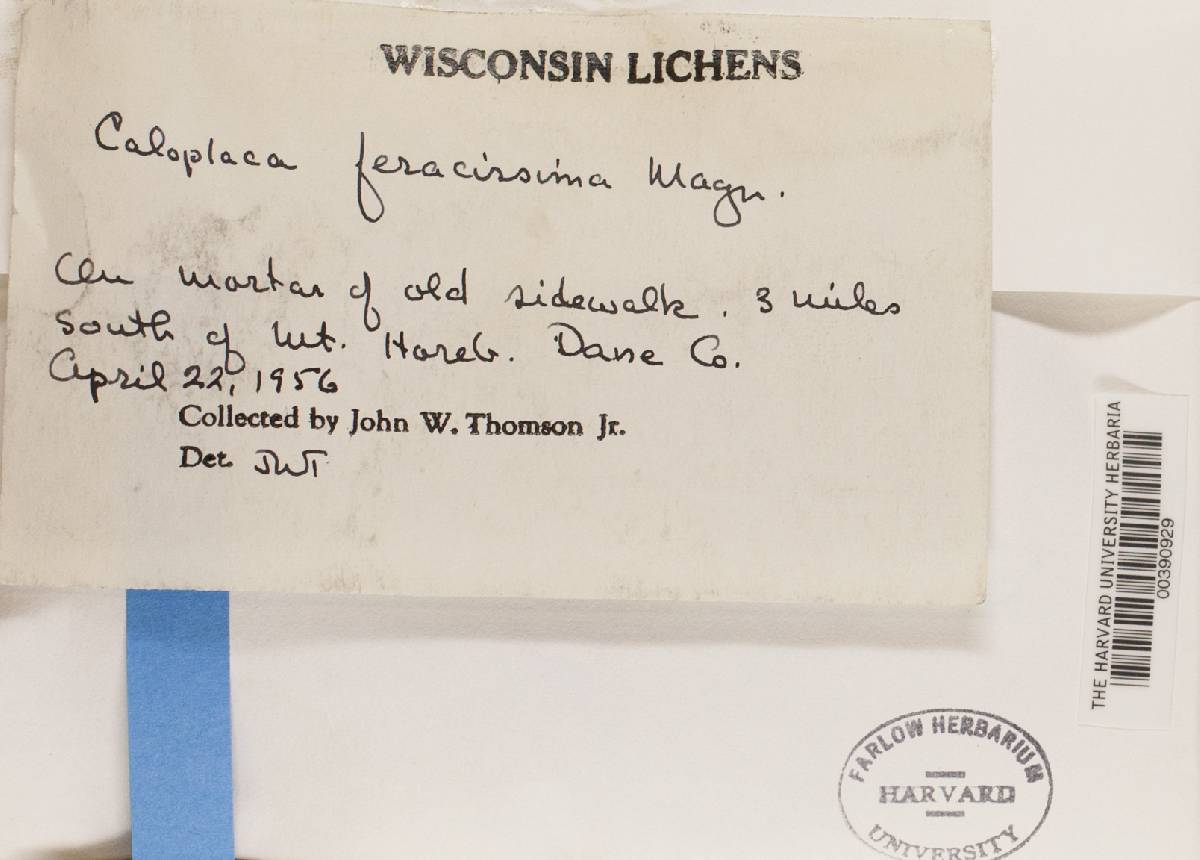 WISCONSIN LICHENS
Caloplaca feracissima Magn.
On mortar of old sidewalk. 3 miles
south of Mt. Horeb. Dane Co.
April 22, 1956
Collected by John W. Thomson Jr.
Det. JWT
THE HARVARD UNIVERSITY HERBARIA
00390929
FARLOW HERBARIUM
HARVARD
UNIVERSITY